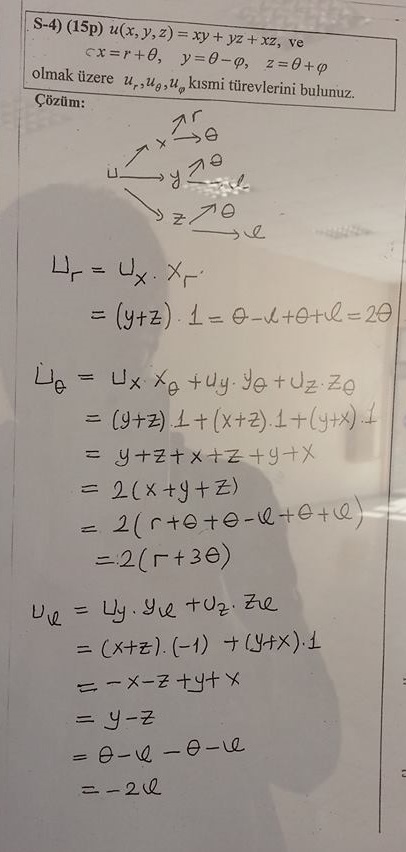 S-4) (15p) u(x,y,z) = xy + yz + xz, ve
x = r + θ, y = θ − φ, z = θ + φ
olmak üzere u_r, u_θ, u_φ kısmi türevlerini bulunuz.
Çözüm:
r
x θ
θ
u y φ
z θ
φ
U_r = U_x . X_r
= (y+z) . 1 = θ−φ+θ+φ = 2θ
U_θ = U_x . X_θ + U_y . y_θ + U_z . z_θ
= (y+z).1 + (x+z).1 + (y+x).1
= y+z+x+z+y+x
= 2(x+y+z)
= 2(r+θ+θ−φ+θ+φ)
= 2(r+3θ)
U_φ = U_y . y_φ + U_z . z_φ
= (x+z).(−1) + (y+x).1
= −x−z+y+x
= y−z
= θ−φ−θ−φ
= −2φ